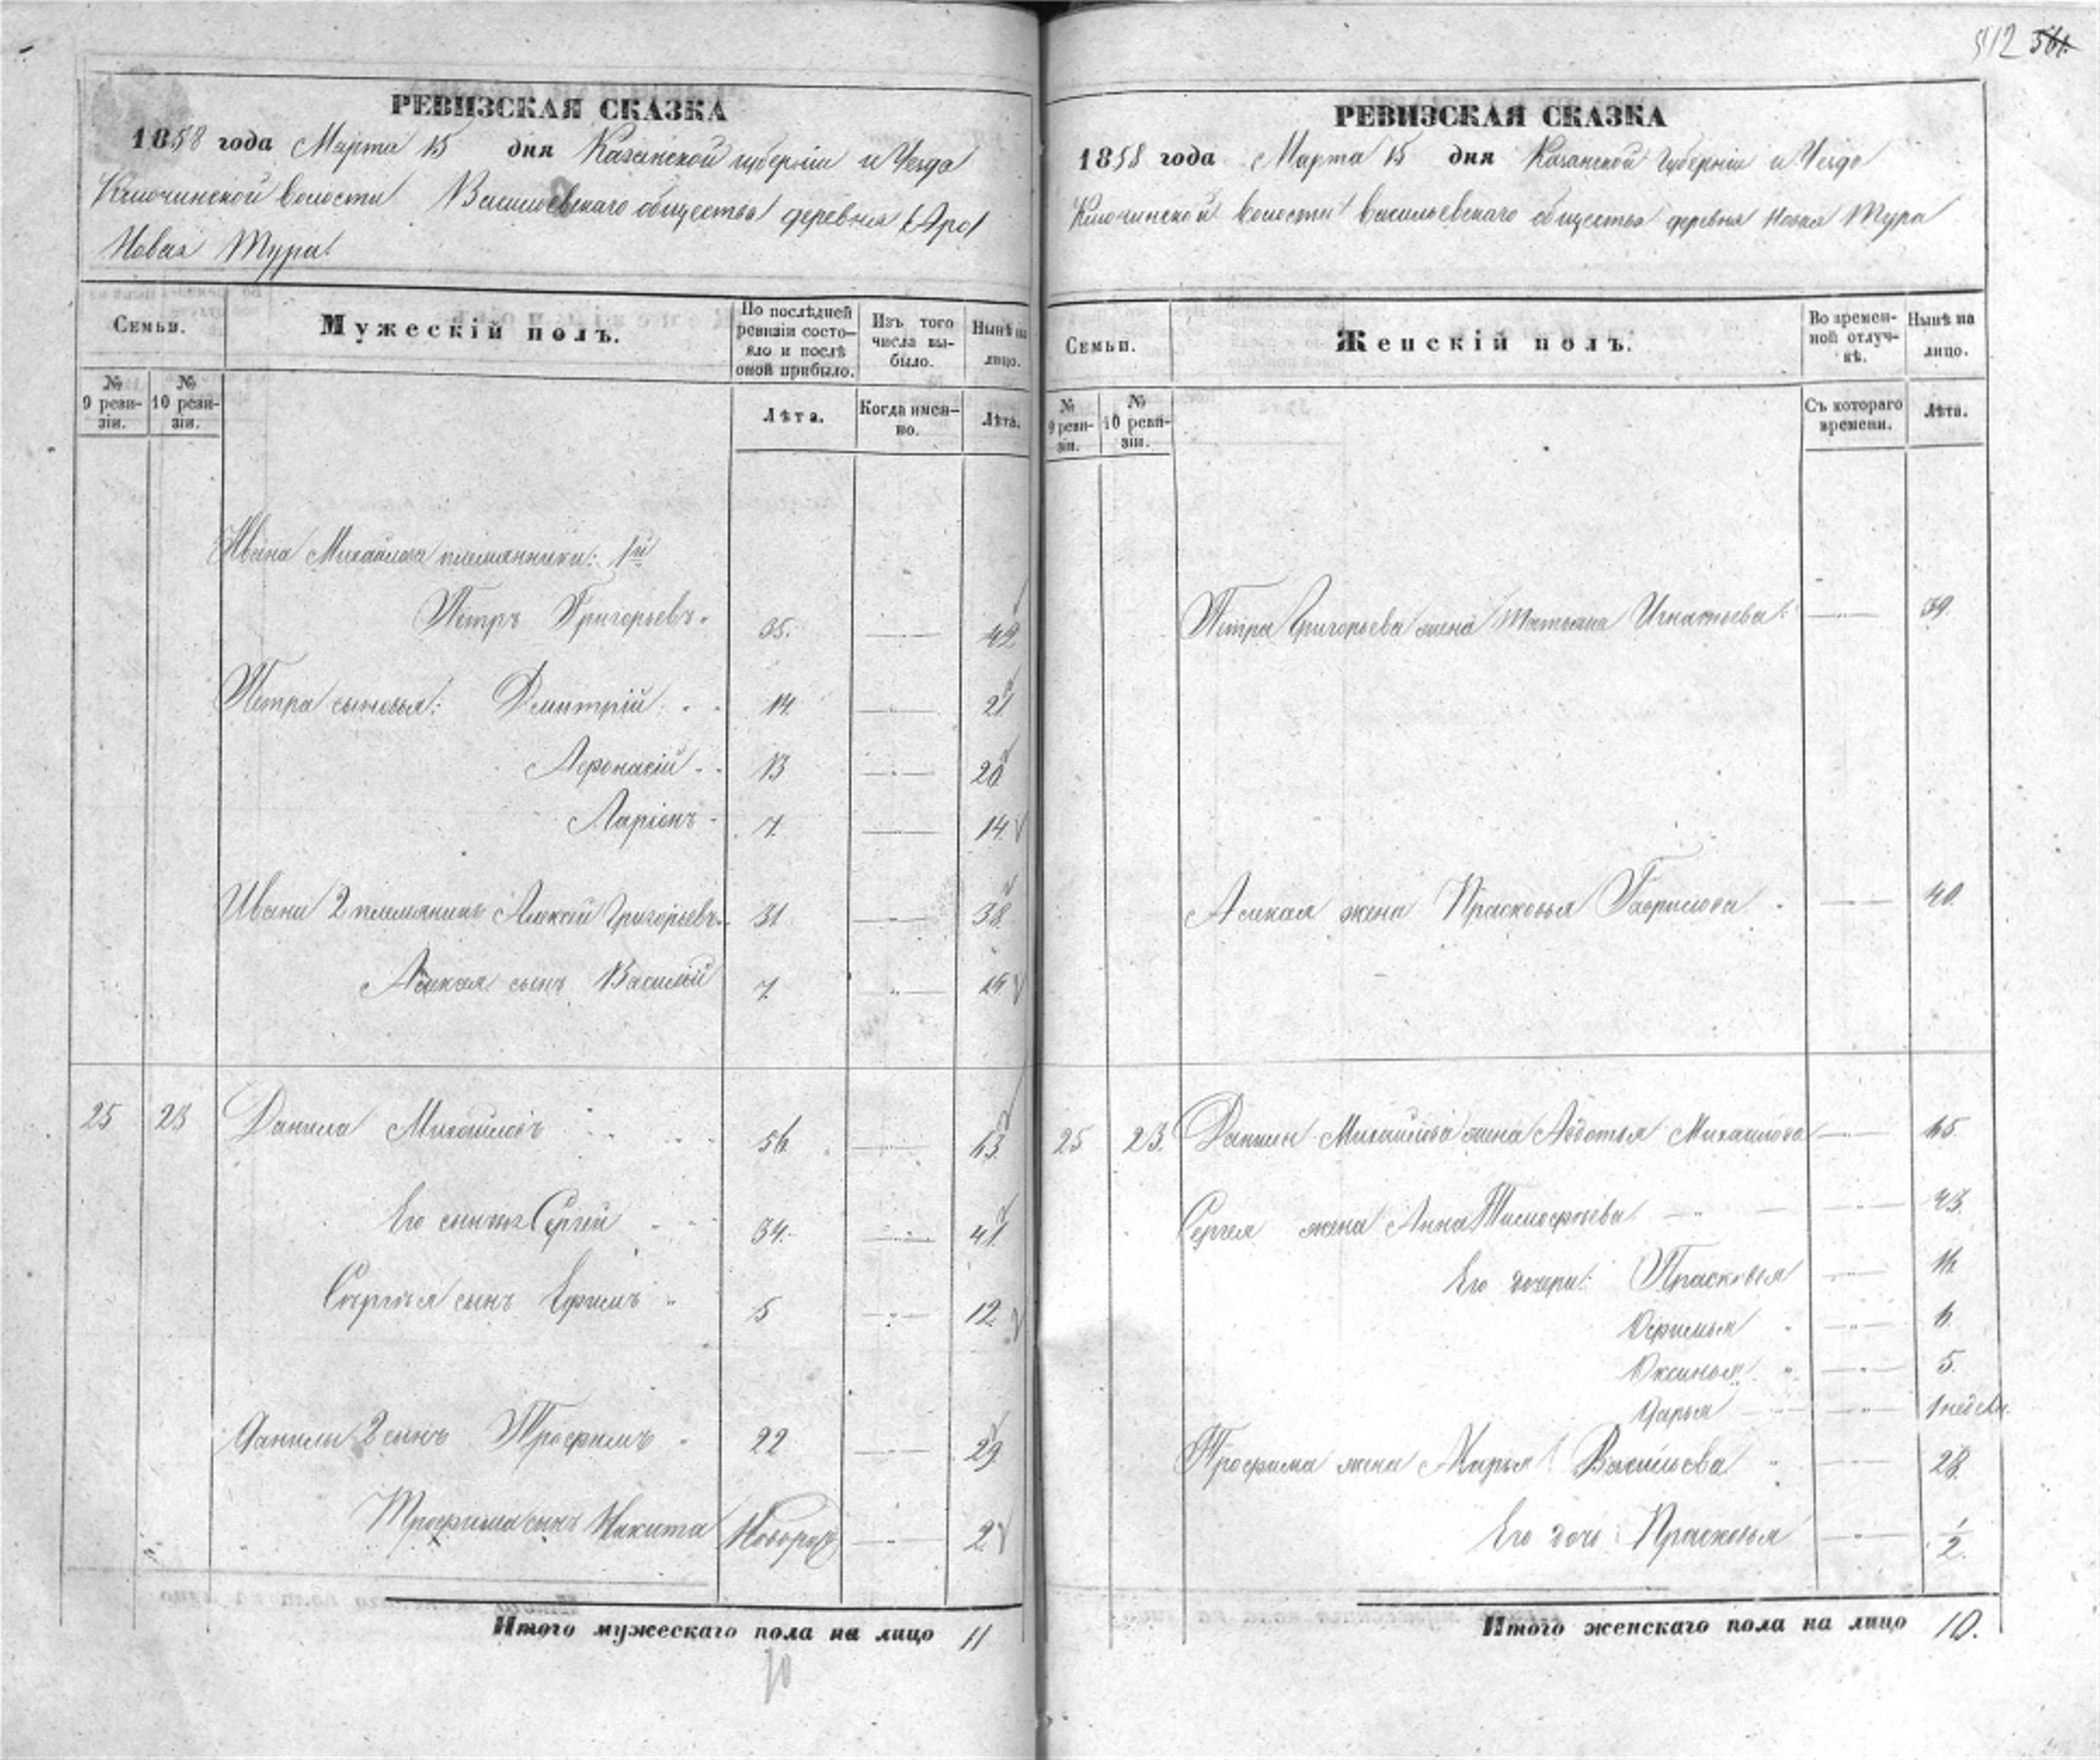 512 561.
РЕВИЗСКАЯ СКАЗКА
1858 года Марта 15 дня Казанской губерніи и Уезда
Ключинской волости Васильевскаго общества деревня
Новая Тура
Семьи.
Мужескій полъ.
По послѣдней ревизіи состояло и послѣ оной прибыло.
Изъ того числа выбыло.
Нынѣ на лицо.
№ 9 ревизіи.
№ 10 ревизіи.
Лѣта.
Когда именно.
Лѣта.
Ивана Михайлова племянники: 1й
Петръ Григорьевъ 35. 42
Петра сыновья: Дмитрій 14. 21
Афонасій 13 20
Ларіонъ 7. 14
Ивана 2 племянникъ Алексей Григорьевъ 31 38
Алексея сынъ Василій 7. 14
25 23 Данила Михайловъ 56. 63
Его сынъ Сергей 34. 41
Сергея сынъ Ефимъ 5 12.
Данилы 2 сынъ Трофимъ 22 29
Трофима сынъ Никита Новорож 2
Итого мужескаго пола на лицо 11
10
РЕВИЗСКАЯ СКАЗКА
1858 года Марта 15 дня Казанской Губерніи и Уезда
Ключинской волости Васильевскаго общества деревня Новая Тура
Семьи.
Женскій полъ.
Во временной отлучкѣ.
Нынѣ на лицо.
№ 9 ревизіи.
№ 10 ревизіи.
Съ котораго времени.
Лѣта.
Петра Григорьева жена Татьяна Игнатьева 39.
Алексея жена Прасковья Гаврилова 40.
25 23. Данилы Михайлова жена Авдотья Михайлова 65.
Сергея жена Анна Тимофеева 43.
Его дочери: Прасковья 16
Офимья 6
Оксинья 5.
Дарья 1 недели.
Трофима жена Марья Васильева 28.
Его дочь Прасковья 1/2
Итого женскаго пола на лицо 10.